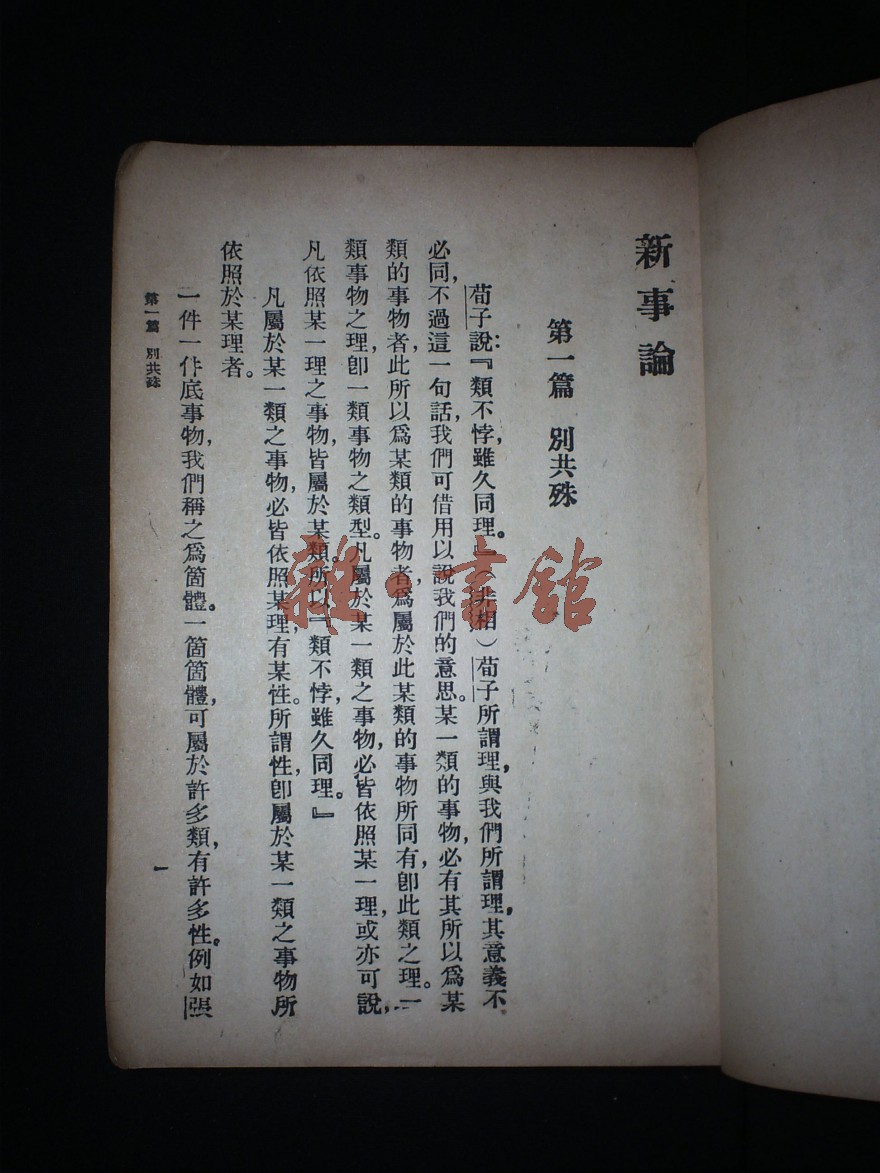 新事論
第一篇　別共殊
荀子說：『類不悖，雖久同理。』（非相）荀子所謂理，與我們所謂理，其意義不
必同，不過這一句話，我們可借用以說我們的意思。某一類的事物，必有其所以爲某
類的事物者，此所以爲某類的事物者，爲屬於此某類的事物所同有，卽此類之理。一
類事物之理，卽一類事物之類型。凡屬於某一類之事物，必皆依照某一理，或亦可說，
凡依照某一理之事物，皆屬於某類。所以『類不悖，雖久同理。』
凡屬於某一類之事物，必皆依照某理，有某性。所謂性，卽屬於某一類之事物所
依照於某理者。
一件一件底事物，我們稱之爲箇體。一箇箇體，可屬於許多類，有許多性。例如張
第一篇　別共殊
一
雜·書館